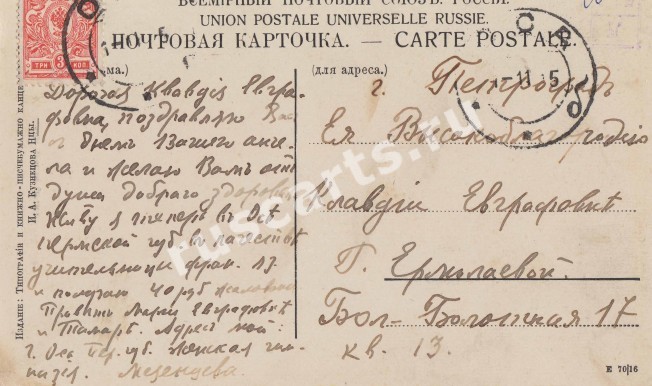 ВСЕМІРНЫЙ ПОЧТОВЫЙ СОЮЗЪ. РОССІЯ.
UNION POSTALE UNIVERSELLE RUSSIE.
ПОЧТОВАЯ КАРТОЧКА. — CARTE POSTALE.
ма.)
(для адреса.)
ТРИ 3 КОП.
Дорогая Клавдія Евгра-
фовна, поздравляю Васъ
съ днемъ Вашего анге-
ла и желаю Вамъ отъ
души добраго здоровья
Живу я теперь въ Осѣ
Пермской губ. въ качествѣ
учительницы фран. яз.
и получаю 40 руб жалованья
Привѣтъ Маріи Евграфовнѣ
и Тамарѣ. Адресъ мой:
г. Оса Пер. губ. Женская гим-
назія. Мезенцева.
г. Петроградъ
Ея Высокоблагородію
Клавдіи Евграфовнѣ
Г. Ермолаевой.
Бол-Болотная 17
кв. 13.
Изданіе: Типографія и книжно-писчебумажно канце
И. А. Кузнецова Нцы.
ОСА
-11 15
E 70/16
ruscarts.ru